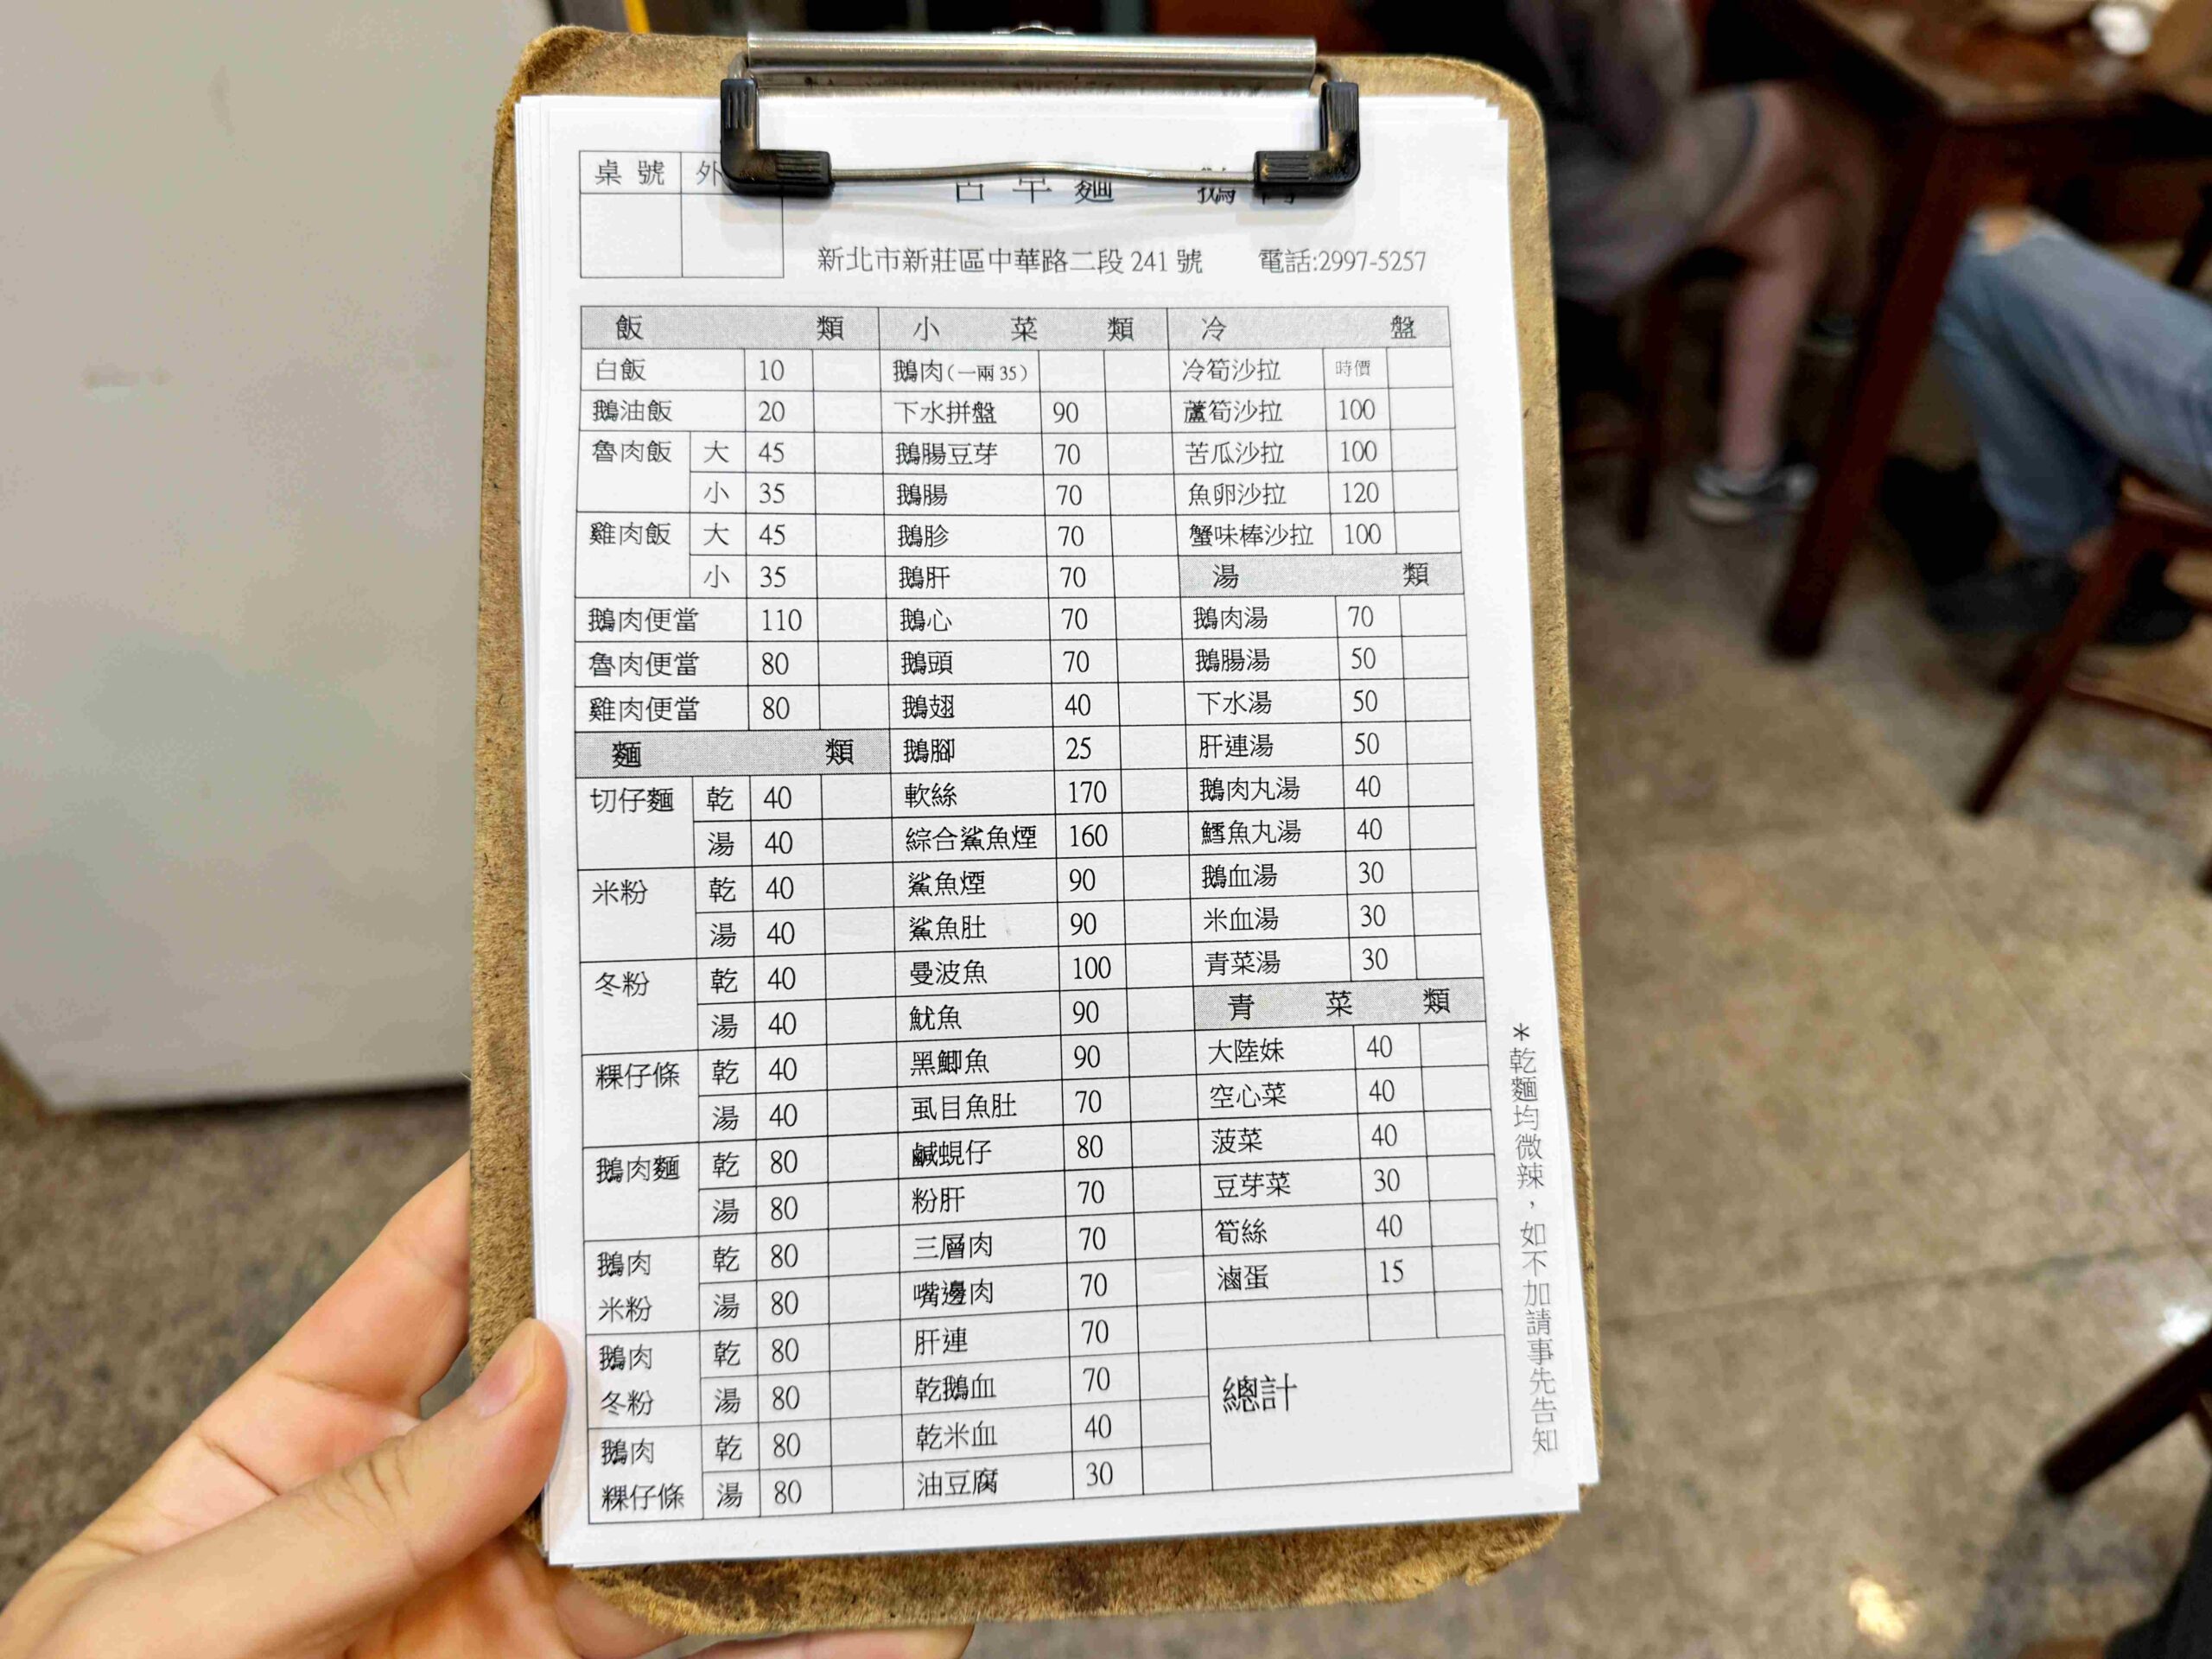 桌號 外
古早麵 鵝肉
新北市新莊區中華路二段 241 號 電話:2997-5257
飯類
白飯 10
鵝油飯 20
魯肉飯 大 45
小 35
雞肉飯 大 45
小 35
鵝肉便當 110
魯肉便當 80
雞肉便當 80
麵類
切仔麵 乾 40
湯 40
米粉 乾 40
湯 40
冬粉 乾 40
湯 40
粿仔條 乾 40
湯 40
鵝肉麵 乾 80
湯 80
鵝肉 乾 80
米粉 湯 80
鵝肉 乾 80
冬粉 湯 80
鵝肉 乾 80
粿仔條 湯 80
小菜類
鵝肉(一兩 35)
下水拼盤 90
鵝腸豆芽 70
鵝腸 70
鵝胗 70
鵝肝 70
鵝心 70
鵝頭 70
鵝翅 40
鵝腳 25
軟絲 170
綜合鯊魚煙 160
鯊魚煙 90
鯊魚肚 90
曼波魚 100
魷魚 90
黑鯽魚 90
虱目魚肚 70
鹹蜆仔 80
粉肝 70
三層肉 70
嘴邊肉 70
肝連 70
乾鵝血 70
乾米血 40
油豆腐 30
冷盤
冷筍沙拉 時價
蘆筍沙拉 100
苦瓜沙拉 100
魚卵沙拉 120
蟹味棒沙拉 100
湯類
鵝肉湯 70
鵝腸湯 50
下水湯 50
肝連湯 50
鵝肉丸湯 40
鱈魚丸湯 40
鵝血湯 30
米血湯 30
青菜湯 30
青菜類
大陸妹 40
空心菜 40
菠菜 40
豆芽菜 30
筍絲 40
滷蛋 15
總計
*乾麵均微辣，如不加請事先告知